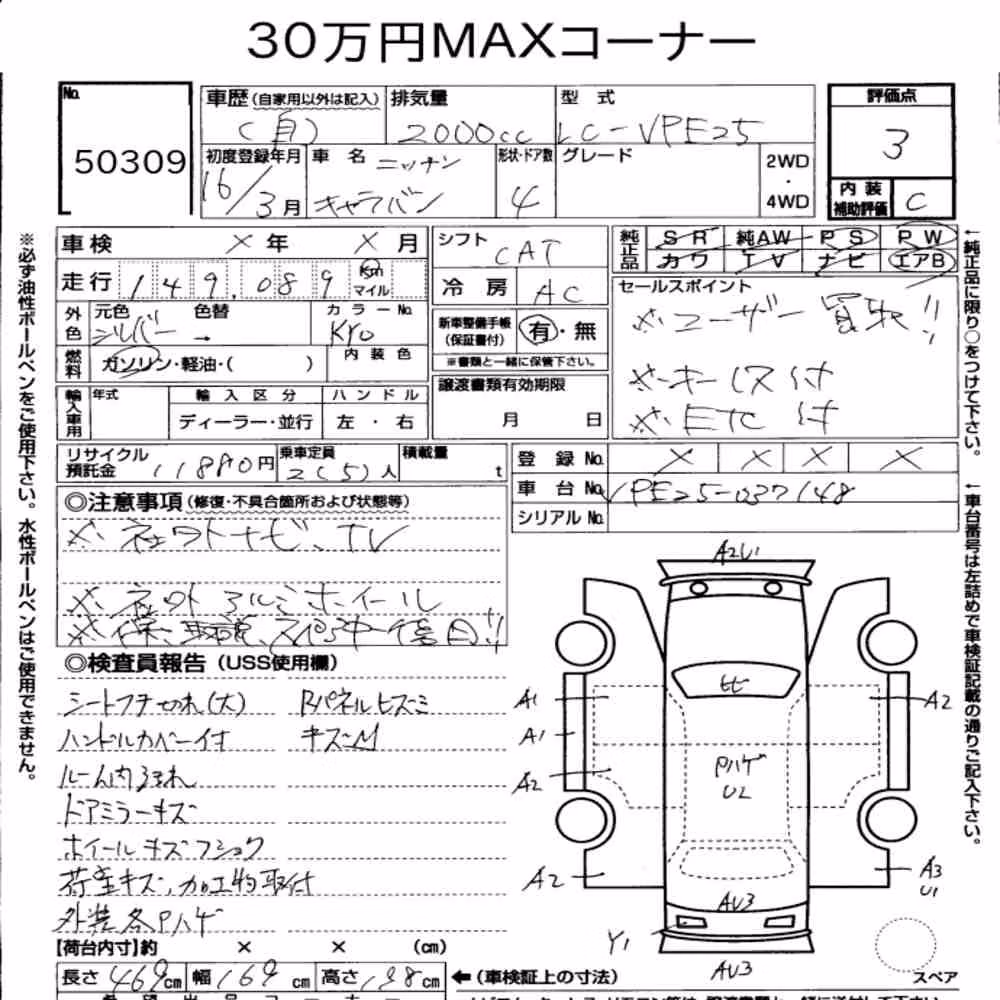 30万円MAXコーナー
No. 50309
車歴(自家用以外は記入) (自)
排気量 2000cc
型式 LC-VPE25
評価点 3
内装補助評価 C
初度登録年月 16/3月
車名 ニッサン キャラバン
形状・ドア数 4
グレード
2WD・4WD
車検 × 年 × 月
シフト CAT
純正品 SR 純AW PS PW
カワ TV ナビ エアB
走行 149,089 km マイル
冷房 AC
セールスポイント
※ユーザー買取!!
※キーレス付
※ETC付
外色 元色 シルバー 色替 → カラーNo. KY0
内装色
新車整備手帳(保証書付) 有・無
※書類と一緒に保管下さい。
燃料 ガソリン・軽油・( )
譲渡書類有効期限
月 日
輸入車用 年式 輸入区分 ハンドル
ディーラー・並行 左・右
リサイクル預託金 11880円
乗車定員 2(5)人
積載量 t
登録No. × × × ×
車台No. VPE25-037148
シリアルNo.
◎注意事項(修復・不具合箇所および状態等)
※社外ナビ、TV
※社外アルミホイール
◎検査員報告(USS使用欄)
シートフチ切れ(大) Rパネルヒズミ
ハンドルカバー付 キズ凹
ルーム内汚れ
ドアミラーキズ
ホイールキズフショク
荷室キズ、加工物取付
外装各Pハゲ
【荷台内寸】約 × × (cm)
長さ469cm 幅169cm 高さ198cm
←(車検証上の寸法)
スペア
A2U1
ヒビ
A1
A1
A2
A2
A2
PハゲU2
A3U1
AU3
Y1
AU3
※必ず油性ボールペンをご使用下さい。水性ボールペンはご使用できません。
←純正品に限り○をつけて下さい。
←車台番号は左詰めで車検証記載の通りご記入下さい。